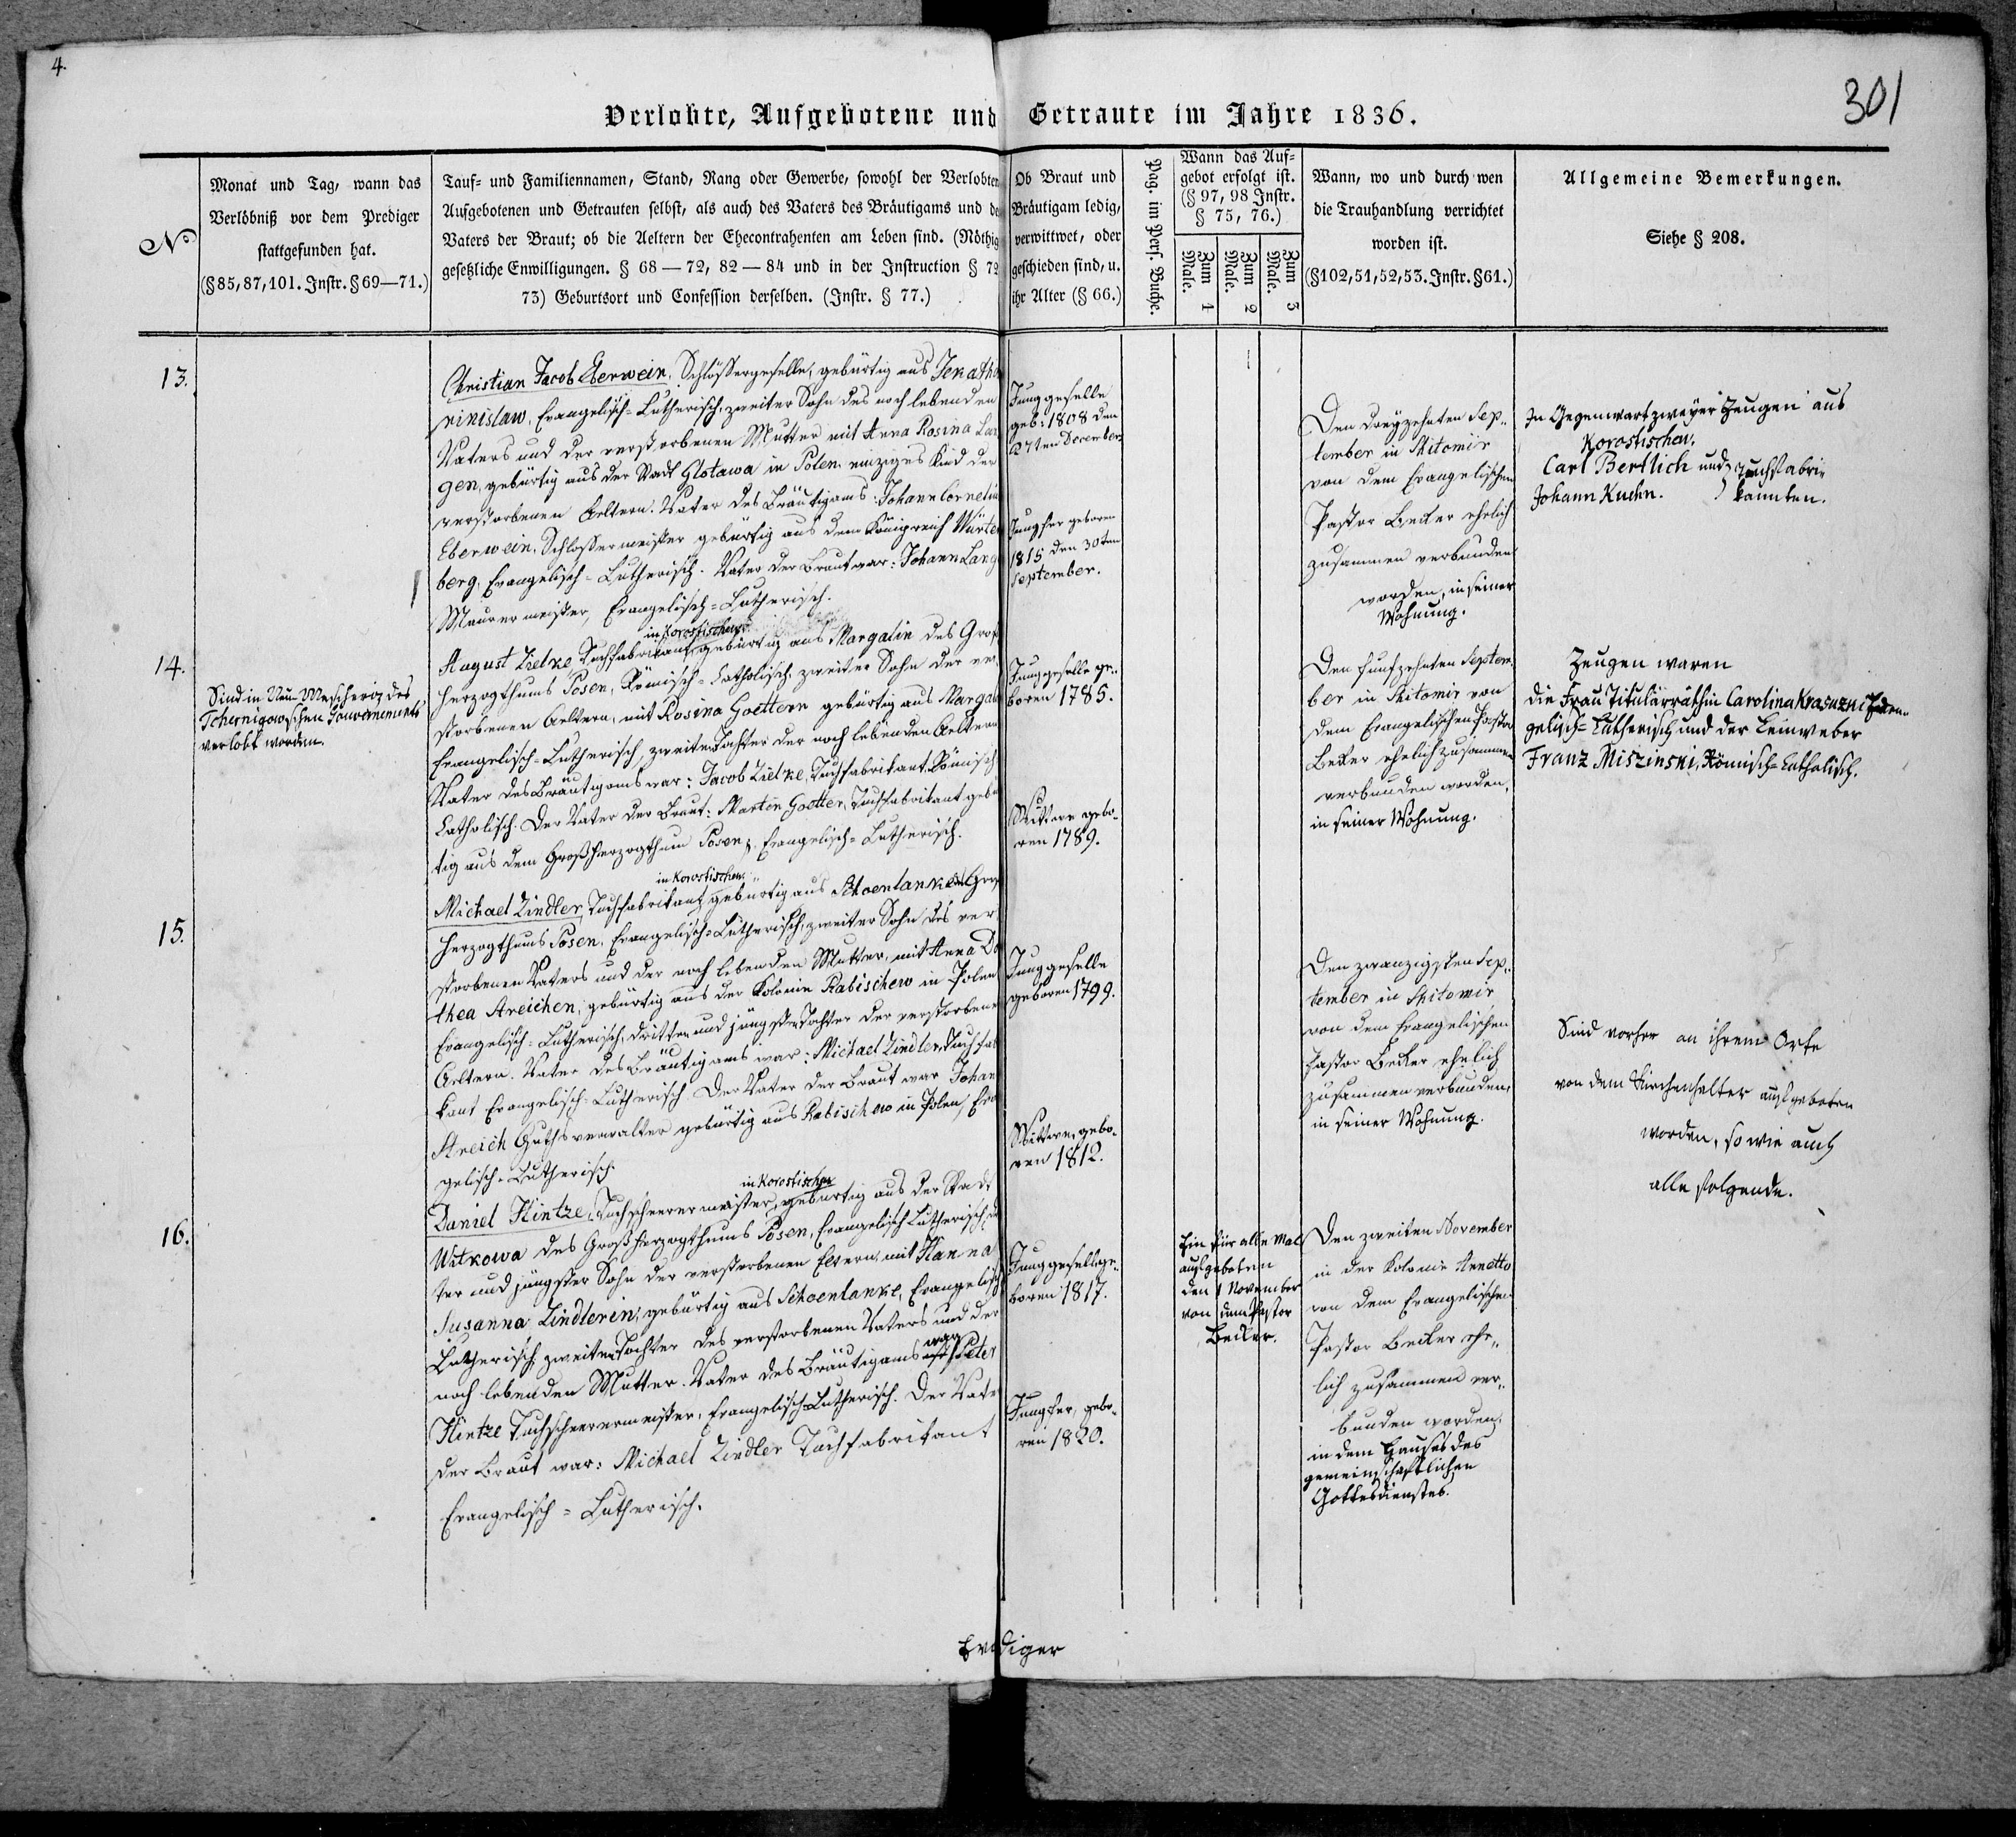 4.
301
Verlobte, Aufgebotene und Getraute im Jahre 1836.
No
Monat und Tag, wann das
Verlöbniß vor dem Prediger
stattgefunden hat.
(§ 85, 87, 101. Instr. § 69—71.)
Tauf- und Familiennamen, Stand, Rang oder Gewerbe, sowohl der Verlobten
Aufgebotenen und Getrauten selbst, als auch des Vaters des Bräutigams und de
Vaters der Braut; ob die Aeltern der Ehecontrahenten am Leben sind. (Nöthig
gesetzliche Einwilligungen. § 68—72, 82—84 und in der Instruction § 72
73) Geburtsort und Confession derselben. (Instr. § 77.)
Ob Braut und
Bräutigam ledig,
verwittwet, oder
geschieden sind, u.
ihr Alter (§ 66.)
Pag. im Pers. Buche.
Wann das Auf=
gebot erfolgt ist.
(§ 97, 98 Instr.
§ 75, 76.)
Zum 1 Male.
Zum 2 Male.
Zum 3 Male.
Wann, wo und durch wen
die Trauhandlung verrichtet
worden ist.
(§102,51,52,53. Instr. §61.)
Allgemeine Bemerkungen.
Siehe § 208.
13.
Christian Jacob Eberwein, Schlössergeselle, gebürtig aus
Evangelisch=Lutherisch, zweiter Sohn des noch lebenden
Vaters und der verstorbenen Mutter mit Anna Rosina Lan
gen, gebürtig aus der Stadt Glotawa in Polen, einziges Kind der
verstorbenen Aeltern. Vater des Bräutigams: Johann Corneliu
Eberwein, Schlossermeister gebürtig aus dem Königreich Würte
berg, Evangelisch=Lutherisch. Vater der Braut war: Johann Lang
Maurermeister, Evangelisch=Lutherisch.
Junggeselle
geb: 1808 den
27ten December
Jungfer geboren
1815 den 30ten
September.
Den dreyzehnten Sep=
tember in Shitomir
von dem Evangelischen
Pastor Becker ehelich
zusammen verbunden
worden, in seiner
Wohnung.
In Gegenwart zweyer Zeugen aus
Korostischew,
Carl Bertlich und } Tuchfabri=
Johann Kuehn. } kannten.
14.
Sind in Neu-Mescheriz des
Tchernigowschen Gouvernements
verlobt worden.
in Korostischew
August Zielke, Tuchfabrikant, gebürtig aus Margalin des Groß
herzogthums Posen, Römisch=Catholisch, zweiter Sohn der ver
storbenen Aeltern, mit Rosina Goettern gebürtig aus Margali
Evangelisch=Lutherisch, zweite Tochter der noch lebenden Aeltern
Vater des Bräutigams war: Jacob Zielke, Tuchfabrikant, Römisch
Catholisch. Der Vater der Braut: Martin Goetter, Tuchfabrikant gebü
tig aus dem Großherzogthum Posen, Evangelisch=Lutherisch.
Junggeselle ge=
boren 1785.
Wittwe gebo=
ren 1789.
Den funfzehnten Septem=
ber in Shitomir von
dem Evangelischen Pastor
Becker ehelich zusammen
verbunden worden,
in seiner Wohnung.
Zeugen waren
die Frau Titulärräthin Carolina
gelisch=Lutherisch und der Leinweber
Franz Miszinski, Römisch=Catholisch.
15.
in Korostischew
Michael Zindler, Tuchfabrikant, gebürtig aus Schoenlanke des Groß
herzogthums Posen, Evangelisch=Lutherisch, zweiter Sohn des ver
storbenen Vaters und der noch lebenden Mutter, mit Anna Do
thea Streichen, gebürtig aus der Kolonie Rabischew in Polen
Evangelisch=Lutherisch, dritte und jüngste Tochter der verstorbene
Aeltern. Vater des Bräutigams war: Michael Zindler, Tuchfab
kant Evangelisch=Lutherisch. Der Vater der Braut war Johan
Streich Guthsverwalter gebürtig aus Rabischew in Polen, Eva
gelisch=Lutherisch.
Junggeselle
geboren 1799.
Wittwe, gebo=
ren 1812.
Den zwanzigsten Sep=
tember in Shitomir
von dem Evangelischen
Pastor Becker ehelich
zusammen verbunden,
in seiner Wohnung.
Sind vorher an ihrem Orte
von dem Kirchenhalter aufgeboten
worden, so wie auch
alle folgende.
16.
in Korostischew
Daniel Hintze, Tuchscheerermeister, gebürtig aus der Stadt
Witkowa des Großherzogthums Posen, Evangelisch Lutherisch,
ter und jüngster Sohn der verstorbenen Eltern, mit Hanna
Susanna Zindlerin, gebürtig aus Schoenlanke, Evangelisch
Lutherisch, zweite Tochter des verstorbenen Vaters und der
noch lebenden Mutter. Vater des Bräutigams war Peter
Hintze Tuchscheerermeister, Evangelisch=Lutherisch. Der Vate
der Braut war: Michael Zindler Tuchfabrikant
Evangelisch=Lutherisch.
Junggeselle ge=
boren 1817.
Jungfer, gebo=
ren 1820.
Ein für alle Mal
aufgeboten
den 1 November
von dem Pastor
Becker.
Den zweiten November
in der Kolonie Annetta
von dem Evangelischen
Pastor Becker ehe=
lich zusammen ver=
bunden worden,
in dem Hause des
gemeinschaftlichen
Gottesdienstes.